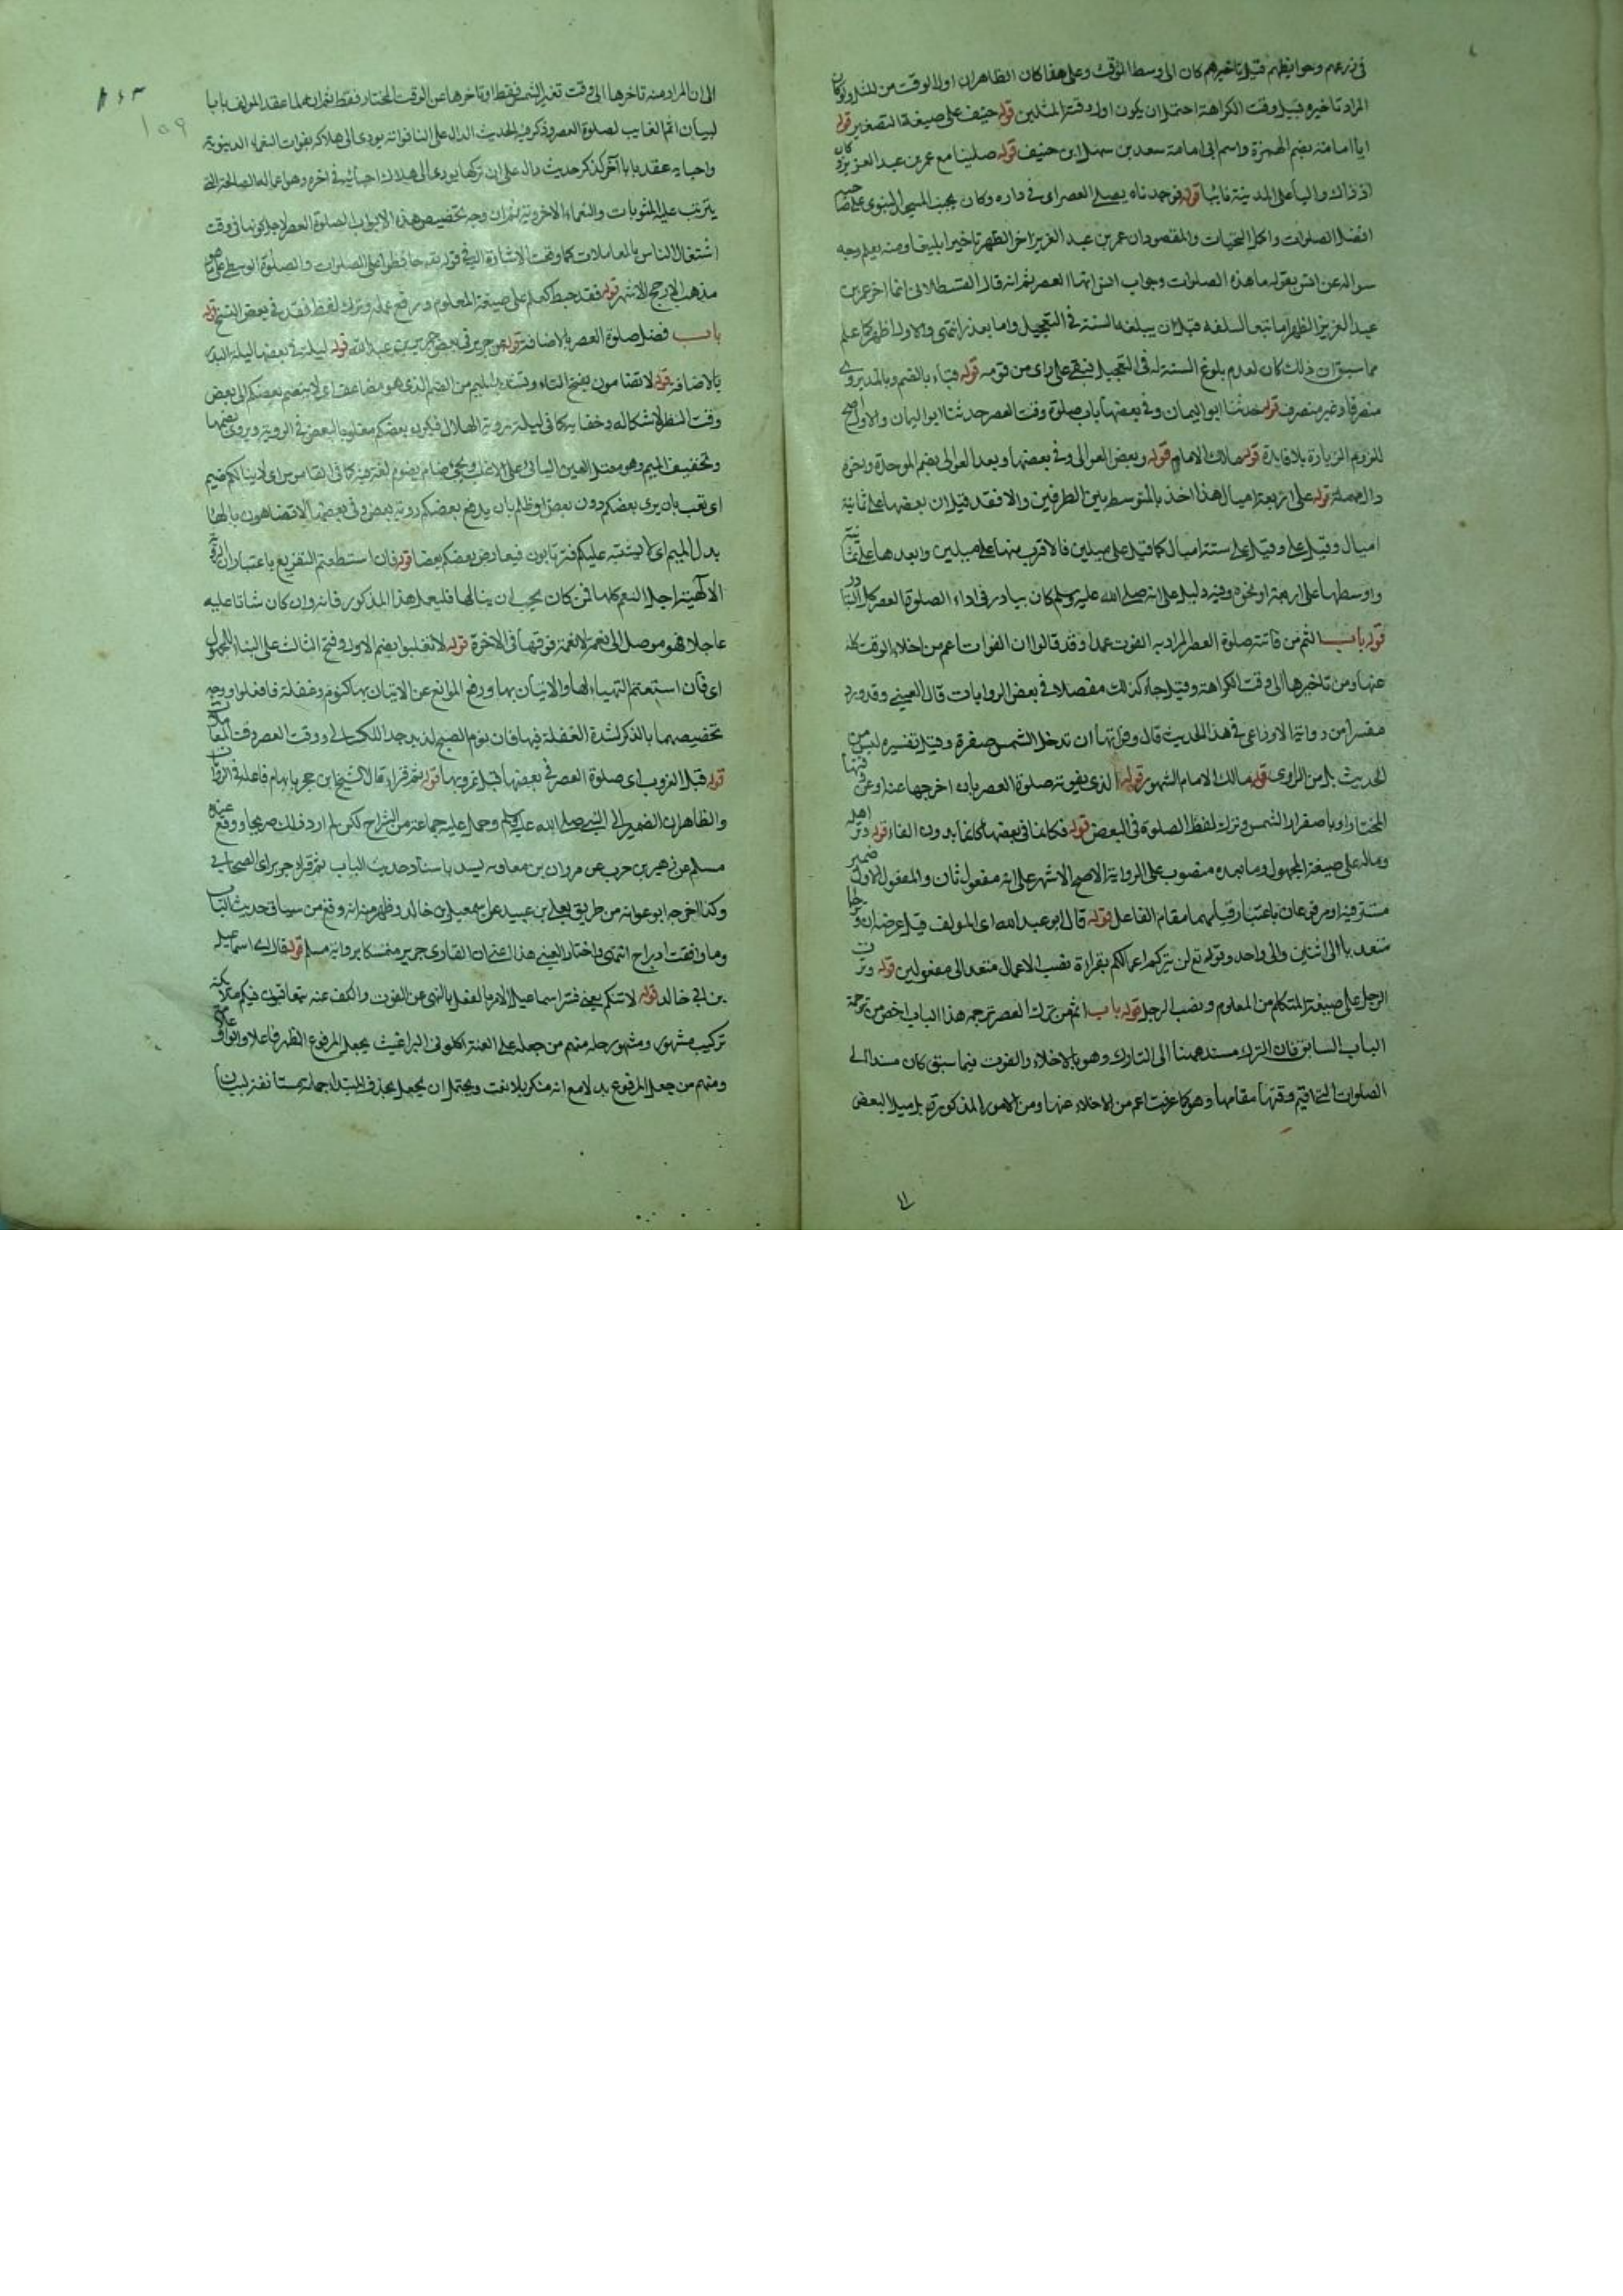 في زرعهم وحوايطهم قيل تاخيرهم كان الى وسط الوقت وعلى هذا كان الظاهر ان اول الوقت من المثل ولو كان
المراد تاخيره قبيل وقت الكراهة احتمل ان يكون اول وقته المثلين قوله حنيف على صيغة التصغير قوله
ابا امامة بضم الهمزة واسم ابي امامة سعد بن سهل ابن حنيف قوله صلينا مع عمر بن عبد العزيز وكان
اذ ذاك واليا على المدينة نائبا قوله فوجدناه يصلي العصر اى في داره وكان بجنب المسجد النبوى على صاحبه
افضل الصلوات واكمل التحيات والمقصود ان عمر بن عبد العزيز اخر الظهر تاخيرا بليغا ومنه يعلم وجه
سواله عن انس بقوله ما هذه الصلوات وجواب انس انها العصر ثم انه قال القسطلاني انما اخر عمر بن
عبد العزيز الظهر اما تبعا لسلفه قبل ان يبلغه السنة في التعجيل واما بعذر انتهى والاول اظهر كما علم
مما سبق ان ذلك كان لعدم بلوغ السنة له في التعجيل فبقى على راى من قومه قوله قباء بالضم وبالمد يروى
منصرفا وغير منصرف قوله حدثنا ابو اليمان وفي بعضها باب صلوة وقت العصر حدثنا ابو اليمان والاول اصح
للزوم الزيادة بلا فايدة قوله مالك الامام قوله وبعض العوالى وفي بعضها وبعد العوالى بضم الموحدة وبخره
دال مهملة قوله على اربعة اميال هذا اخذ بالمتوسط بين الطرفين والا فقد قيل ان بعضها على ثمانية
اميال وقيل على وقيل على ستة اميال كما قيل على ميلين فالاقرب منها على ميلين وابعدها على ثمانية
واوسطها على اربعة او نحوه وفيه دليل على انه صلى الله عليه وسلم كان يبادر في اداء الصلوة العصر كل
قوله باب اثم من فاتته صلوة العصر المراد به الفوت عمدا وقد قالوا ان الفوات اعم من اخلاء الوقت كله
عنها ومن تاخيرها الى وقت الكراهة وقيل جاء كذلك مفصلا في بعض الروايات قال العيني وقد ورد
مفسرا من رواية الاوزاعى في هذا الحديث قال وفواتها ان تدخل الشمس صفرة وقيل تفسيره ليس من
الحديث بل من الراوى قوله مالك الامام المشهور قوله الذي يفوته صلوة العصر بان اخرجها عمدا وعن وقتها
المختار او باصفرار الشمس وترك لفظ الصلوة في البعض قوله فكانما في بعضها كانما بدون الفاء قوله وتر اهله
وماله على صيغة المجهول وما بعده منصوب على الرواية الاصح الاشهر على انه مفعول ثان والمفعول الاول ضمير
مستتر فيه او مرفوعان باعتبار قيامهما مقام الفاعل قوله قال ابو عبد الله اى المولف قيل غرضه ان وتر
متعد بها الى اثنين والى واحد وقوله تع لن يتركم اعمالكم بقراءة نصب الاعمال متعد الى مفعولين قوله وترت
الرجل على صيغة المتكلم من المعلوم ونصب الرجل قوله باب اثم من ترك العصر ترجمة هذا الباب اخص من ترجمة
الباب السابق فان الترك مسند ههنا الى التارك وهو بالاخلاء والفوت فيما سبق كان مسندا الى
الصلوات التى اقيم وقتها مقامها وهو كما عرفت اعم من الاخلاء عنها ومن الامور المذكورة بل ميل البعض
الى ان المراد منه تاخرها الى وقت تغير الشمس فقط او تاخرها عن الوقت المختار فقط ثم انه لما عقد المولف بابا
لبيان اثم الغايب لصلوة العصر وذكر فيه الحديث الدال على ان فواته يودى الى هلاكه بفوات النعماء الدنيوية
واحبابه عقد بابا آخر كذكر حديث دال على ان تركها يودى الى هلاك احبائه في اخره وهو اعماله الصالحة التى
يترتب عليه المثوبات والنعماء الاخروية ثم ان وجه تخصيص هذه الابواب لصلوة العصر لاجل كونها في وقت
اشتغال الناس بالمعاملات كما وقعت الاشارة اليه في قوله تع حافظوا على الصلوات والصلوة الوسطى على ما هو
مذهب الارجح الاشهر قوله فقد حبط كعلم على صيغة المعلوم ورفع عمله وترك لفظ فقد في بعض النسخ قوله
باب فضل صلوة العصر بالاضافة قوله عن جرير في بعض جرير بن عبد الله قوله ليلة في بعضها ليلة البدر
بالاضافة قوله لا تضامون بفتح التاء وتشديد الميم من الضم الذى هو مضاعف اى لا ينضم بعضكم الى بعض
وقت النظر لاشكاله وخفايه كما في ليلة روية الهلال فيكون بعضكم مغلوبا لبعض في الروية ويروى بضمها
وتخفيف الميم وهو معتل العين اليائي على الاغلب ويجى ضام يضوم لغة فيه كما في القاموس اى لا ينالكم ضيم
اى تعب بان يرى بعضكم دون بعض او ظلم بان يدفع بعضكم روية بعض وفي بعضها لا تضاهون بالهاء
بدل الميم اى لا يشتبه عليكم فترتابون فيعارض بعضكم بعضا قوله فان استطعتم التفريع باعتبار ان الروية
الالهية اجل النعم كلها فمن كان يحب ان ينالها فليعمل هذا المذكور فانه وان كان شاقا عليه
عاجلا فهو موصل الى نعمة لا نعمة فوقها في الاخرة قوله لا تغلبوا بضم الاول وفتح الثالث على البناء للمجهول
اى فان استطعتم التهياء لها والاتيان بها ورفع الموانع عن الاتيان بها كنوم وغفلة فافعلوا ووجه
تخصيصهما بالذكر لشدة الغفلة فيها فان نوم الصبح لذيذ جدا للكسالى ووقت العصر وقت المعاملات
قوله قبل الغروب اى صلوة العصر في بعضها قبل غروبها قوله ثم قراء قال الشيخ ابن حجر بابهام فاعله في الروايات
والظاهر ان الضمير الى النبي صلى الله عليه وسلم وحمل عليه جماعة من الشراح لكن لم ار ذلك صريحا ووقع عند
مسلم عن زهير بن حرب عن مروان بن معاوية بسند باسناد حديث الباب ثم قراء جرير اى الصحابي
وكذا اخرجه ابو عوانه من طريق يعلى بن عبيد عن اسمعيل بن خالد وظهر منه انه وقع من سياق حديث الباب
وما وافقت ادراج انتهى واختار العيني هذا اعنى ان القارى جرير متمسكا برواية مسلم قوله قال اى اسماعيل
بن ابي خالد قوله لا تفوتنكم يعنى فسر اسماعيل الامر بالفعل بالنهى عن الفوت والكف عنه يتعاقبون فيكم ملائكة
تركيب مشهور ومشهور حله منهم من جعله على لغة اكلونى البراغيث بجعل المرفوع الظهر فاعلا والواو علامة
ومنهم من جعل المرفوع بدلا مع انه منكر بلا نعت ويحتمل ان يجعل بحذف المبتداء جملة مستانفة لبيان
١٥٩